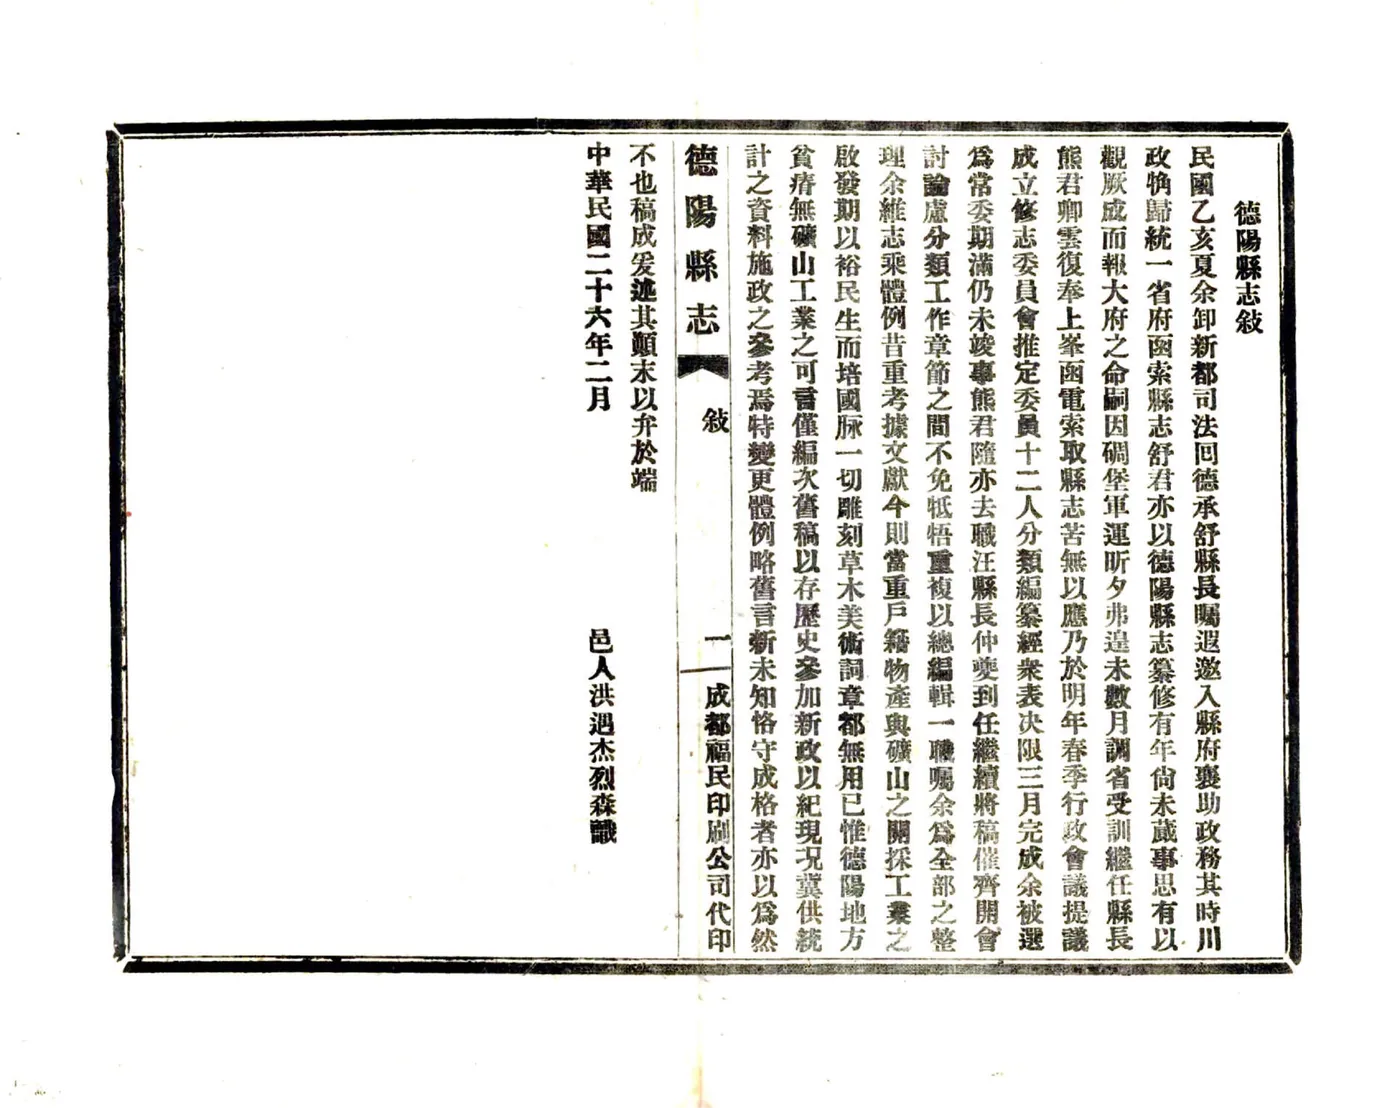 德陽縣志敍
民國乙亥夏余卸新都司法回德承舒縣長囑遐邀入縣府襄助政務其時川
政觕歸統一省府函索縣志舒君亦以德陽縣志纂修有年尙未蕆事思有以
觀厥成而報大府之命嗣因碉堡軍運昕夕弗遑未數月調省受訓繼任縣長
熊君卿雲復奉上峯函電索取縣志苦無以應乃於明年春季行政會議提議
成立修志委員會推定委員十二人分類編纂經衆表决限三月完成余被選
爲常委期滿仍未竣事熊君隨亦去職汪縣長仲夔到任繼續將稿催齊開會
討論慮分類工作章節之間不免牴牾重複以總編輯一職囑余爲全部之整
理余維志乘體例昔重考據文獻今則當重戶籍物產與礦山之開採工業之
啟發期以裕民生而培國脉一切雕刻草木美術詞章都無用已惟德陽地方
貧瘠無礦山工業之可言僅編次舊稿以存歷史參加新政以紀現况冀供統
計之資料施政之參考焉特變更體例略舊言新未知恪守成格者亦以爲然
德陽縣志
敍
一
成都福民印刷公司代印
不也稿成爰述其顚末以弁於端
中華民國二十六年二月
邑人洪遇杰烈森識